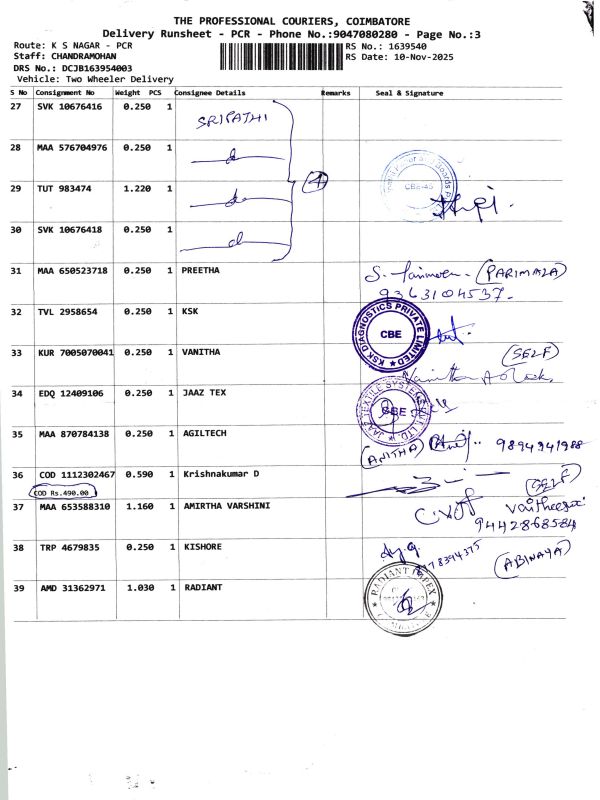 THE PROFESSIONAL COURIERS, COIMBATORE
Delivery Runsheet - PCR - Phone No.:9047080280 - Page No.:3
Route: K S NAGAR - PCR RS No.: 1639540
Staff: CHANDRAMOHAN RS Date: 10-Nov-2025
DRS No.: DCJB163954003
Vehicle: Two Wheeler Delivery
S No Consignment No Weight PCS Consignee Details Remarks Seal & Signature
27 SVK 10676416 0.250 1 SRIPATHI
28 MAA 576704976 0.250 1
29 TUT 983474 1.220 1 4 CBE-45
30 SVK 10676418 0.250 1
31 MAA 650523718 0.250 1 PREETHA (PARIMALA)
9363104537
32 TVL 2958654 0.250 1 KSK KSK DIAGNOSTICS PRIVATE LIMITED CBE
33 KUR 7005070041 0.250 1 VANITHA (SELF)
34 EDQ 12409106 0.250 1 JAAZ TEX JAAZ TEXTILE SYSTEMS PVT LTD CBE
35 MAA 870784138 0.250 1 AGILTECH (ANITHA) 9894941988
36 COD 1112302467 0.590 1 Krishnakumar D (SELF)
COD Rs.490.00
37 MAA 653588310 1.160 1 AMIRTHA VARSHINI
9442868584
38 TRP 4679835 0.250 1 KISHORE (ABINAYA)
39 AMD 31362971 1.030 1 RADIANT RADIANT